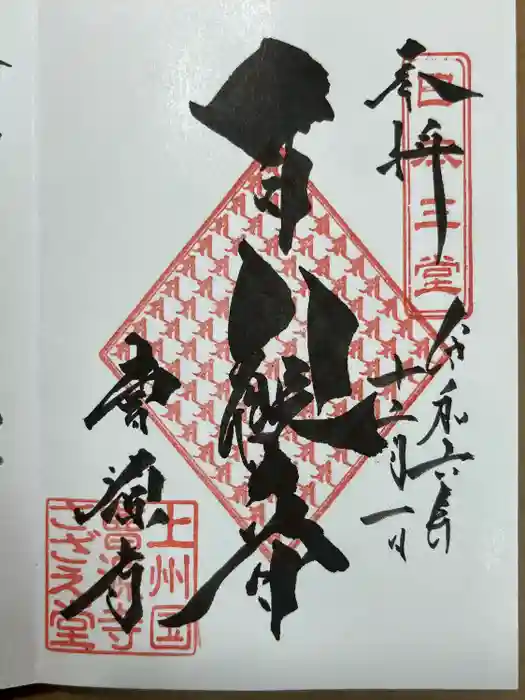 奉拝
日本三堂
令和六年
十二月一日
百観音
曹源寺
上州国
曹源寺
さざえ堂